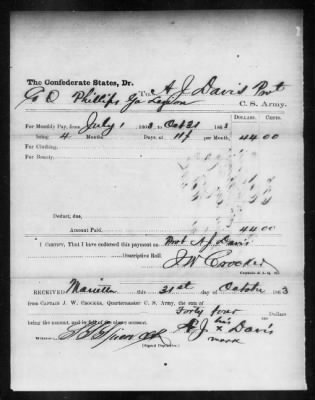 The Confederate States, Dr.
To, A J Davis Pvt
Co O Phillips Ga Legion C. S. Army.
DOLLARS. CENTS.
For Monthly Pay, from July 1 1863, to Oct 31 1863
being 4 Months Days, at 11$ per Month, 44 00
For Clothing,
For Bounty,
Deduct, due,
Amount Paid, 44 00
I CERTIFY, That I have endorsed this payment on Pvt A. J. Davis
Descriptive Roll: J. W. Crocker
Captain & A. Q. M.
RECEIVED Marietta this 31st day of October 1863
from CAPTAIN J. W. CROCKER, Quartermaster C. S. Army, the sum of
Forty four Dollars
being the amount, and in full of the above account.
WITNESS A. J. his x mark Davis
(Signed Duplicates.)